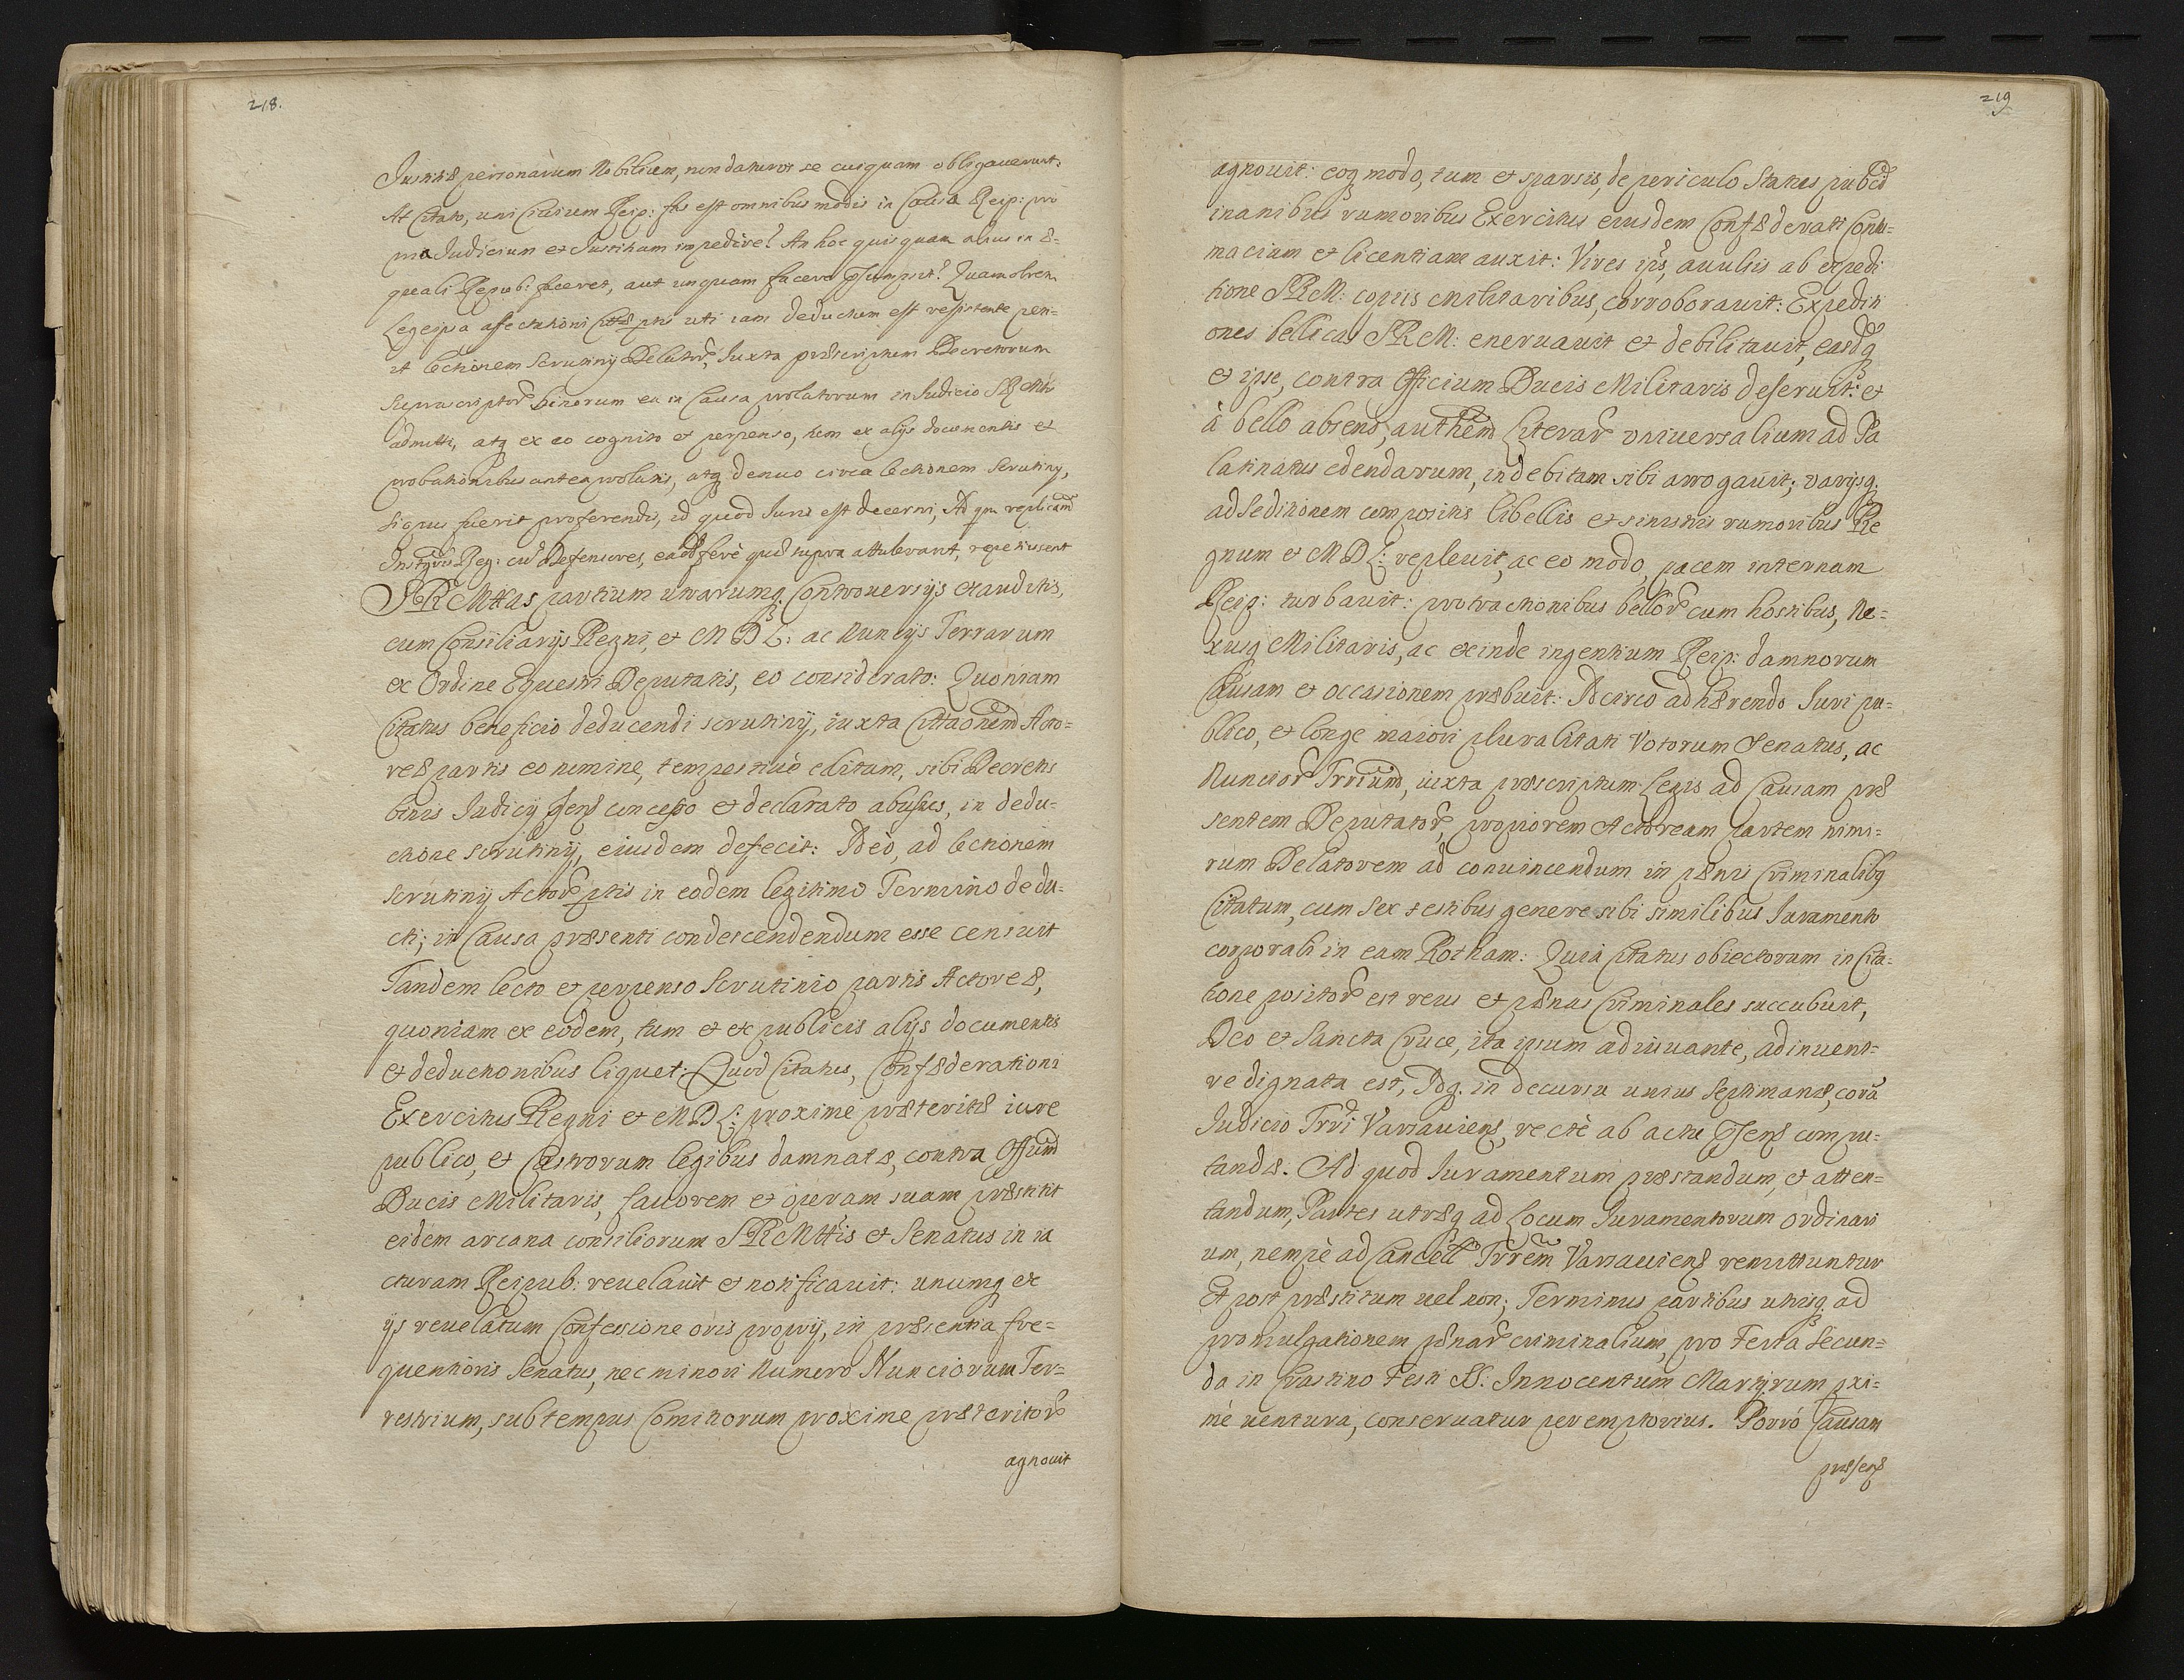 218.
Iustitiæ personarum Nobilium, non daturos se cuiquam obligauerunt.
At Citato, uni Ciuium Reip: fas est omnibus modis in Causa Reip: pro
ma Iudicium et Iustitiam impedire? An hoc quisquam alius in æ-
quali Repub: faceret, aut unquam facere p̃sumpsit? Quamobrem
Lege ipsa afectationi ptis uti iam deductum est resistente peti-
it lectionem Scrutinij Delatorẽ, Iuxta præscriptum Decretorum
supra scriptorẽ binorum ea in Causa prolatorum in Iudicio SRMtis
admitti, atq ex eo cognito et perpenso, tum ex alijs documentis et
probationibus antea prolatis, atq denuo circa lectionem Scrutinij,
si opus fuerit proferendis, id quod Iuris est decerni, Ad quæ replicandõ
Instigtris Reg: cũ Defensores, eadẽ ferè quæ supra attulerant, repetiuerunt
SRMttas partium utrarumq Controuersijs exauditis,
cum Consiliarijs Regni, et MDL: ac Nuncijs Terrarum
ex Ordine Equestri Deputatis, eo considerato: Quoniam
Citatus beneficio deducendi scrutinij, iuxta Cittaõnem Acto-
reæ partis eo nomine, tempestiuè editam, sibi Decretis
binis Iudicij p̃sens concesso et declarato abusus, in dedu-
ctione scrutinij, eiusdem defecit: Ideò, ad lectionem
scrutinij Actoreæ ptis in eodem legitimo Termino dedu-
cti; in Causa præsenti condescendendum esse censuit
Tandem lecto et perpenso Scrutinio partis Actoreæ,
quoniam ex eodem, tum et ex publicis alijs documentis
et deductionibus liquet: Quod Citatus, Confæderationi
Exercitus Regni et MDL: proxime præteritæ iure
publico, et Castrorum legibus damnatæ, contra Offiũm
Ducis Militaris, fauorem et operam suam præstitit
eidem arcana consiliorum SRMttis et Senatus in ia
cturam Reipub: reuelauit et notificauit: unumq ex
ijs reuelatum Confessione oris proprij, in præsentia fre-
quentioris Senatus, nec minori Numero Nunciorum Ter-
restrium, sub tempus Comitiorum proxime præteritorẽ
agnouit
219
agnouit: eoq modo, tum et sparsis, de periculo Status pubci
inanibus rumoribus Exercitus eiusdem Confæderati Contu-
maciam et licentiam auxit: Vires ipĩs, auulsis ab expedi
tione SRM: copijs Militaribus, corroborauit: Expediti
ones bellicas SRM: eneruauit et debilitauit, easdq
et ipse, contra Officium Ducis Militaris deseruit: et
à bello absens, authẽm Literarẽ vniuersalium ad Pa
latinatus edendarum, indebitam sibi arrogauit; varijsq
ad Seditionem compositis libellis et sinistris rumoribus Re
gnum et MDL: repleuit, ac eo modo, pacem internam
Reip: turbauit: protractionibus bellorẽ cum hostibus, Ne-
xusq Militaris, ac exinde ingentium Reip: damnorum
Causam et occasionem præbuit: Idcirco adhærendo Iuri pu-
blico, et longe maiori pluralitati Votorum Senatus, ac
Nunciorẽ Trrium, iuxta præscriptum Legis ad Causam præ
sentem Deputatorẽ, propriorem Actoream partem nimi-
rum Delatorem ad conuincendum in pænis Criminalibq
Citatum, cum sex testibus genere sibi similibus Iuramento
corporali in eam Rotham: Quia Citatus obiectorum in Cita-
tione positorẽ est reus et pænas Criminales succubuit,
Deo et Sancta Cruce, ita ipsum adiuuante, adinueni-
re dignata est, Idq. in decursu unius Septimanæ, corã
Iudicio Trri Varsauiens, rectè ab actu p̃sens compu-
tandæ. Ad quod Iuramentum præstandum, et atten-
tandum, Partes utræq ad Locum Iuramentorum ordinari
um, nempè ad Cancell Trrem Varsauiens remittuntur
Et post præstitum uel non; Terminus partibus utrisq. ad
promulgationem pænarẽ criminalium, pro Feria Secun-
da in Crastino Festi SS. Innocentum Martyrum pxi-
mè uentura, conseruatur peremptorius. Porrò Causam
præsens